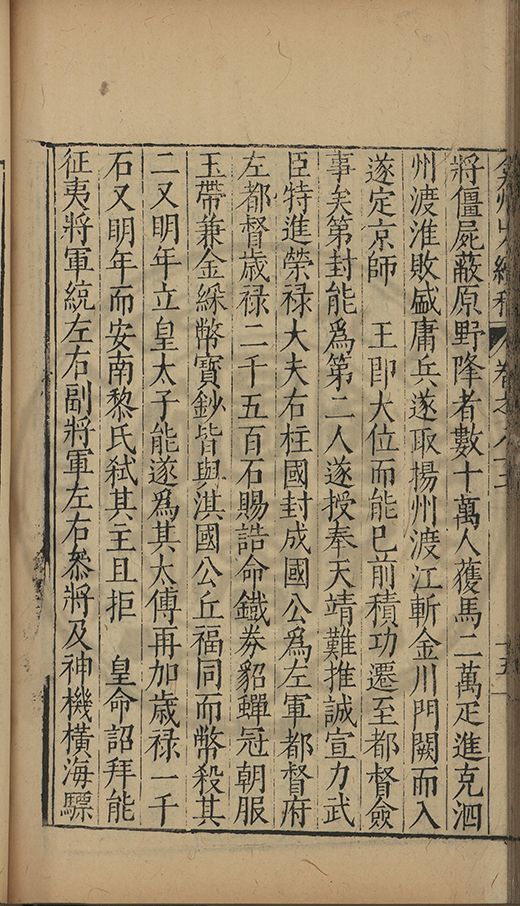 續稿 卷之八十
將僵屍蔽原野降者數十萬人獲馬二萬疋進克泗
州渡淮敗盛庸兵遂取揚州渡江斬金川門闕而入
遂定京師　王即大位而能已前積功遷至都督僉
事矣第封能爲第二人遂授奉天靖難推誠宣力武
臣特進榮禄大夫右柱國封成國公爲左軍都督府
左都督歲禄二千五百石賜誥命鐵券貂蟬冠朝服
玉帶兼金綵幣寶鈔皆與淇國公丘福同而幣殺其
二又明年立皇太子能遂爲其太傅再加歲禄一千
石又明年而安南黎氏弒其主且拒　皇命詔拜能
征夷將軍統左右副將軍左右叅將及神機橫海驃